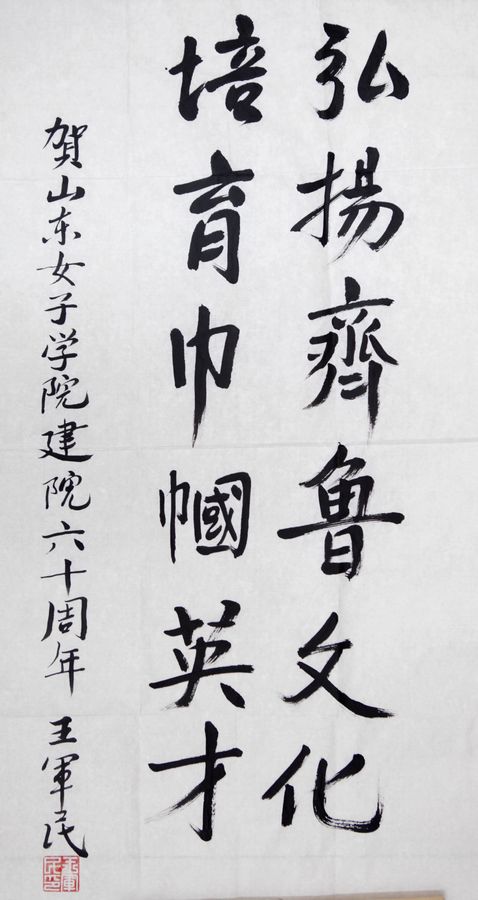 弘揚齊魯文化
培育巾幗英才
贺山东女子学院建院六十周年 王軍民